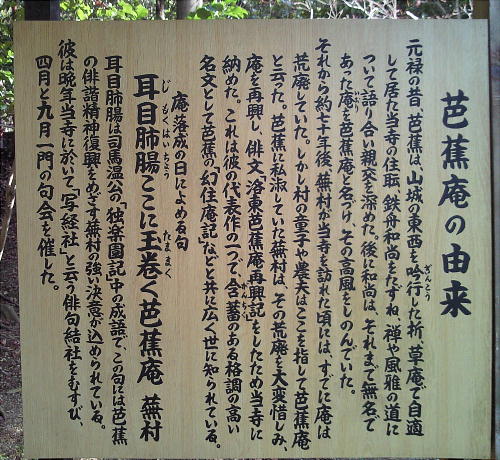 芭蕉庵の由来
元禄の昔、芭蕉は山城の東西を吟行した折、草庵で自適
ぎんこう
して居た当寺の住職、鉄舟和尚をたずね、禅や風雅の道に
ついて語り合い親交を深めた。後に和尚は、それまで無名で
あった庵を芭蕉庵と名づけ、その高風をしのんでいた。
いおり
それから約七十年後、蕪村が当寺を訪れた頃には、すでに庵は
荒廃していた。しかし村の童子や農夫はここを指して芭蕉庵
と云った。芭蕉に私淑していた蕪村は、その荒廃を大変惜しみ、
庵を再興し、俳文「洛東芭蕉庵再興記」をしたため当寺に
納めた。これは彼の代表作の一つで、含蓄のある格調の高い
がんちく
名文として芭蕉の「幻住庵記」などと共に広く世に知られている。
庵落成の日によめる句
耳目肺腸ここに玉巻く芭蕉庵 蕪村
じもくはいちょう
たままく
耳目肺腸は司馬温公の「独楽園記」中の成語で、この句には芭蕉
の俳諧精神復興をめざす蕪村の強い決意が込められている。
彼は晩年当寺に於いて「写経社」と云う俳句結社をむすび、
四月と九月一門の句会を催した。